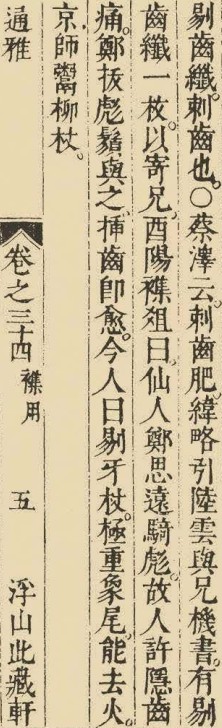 剔齒纖刺齒也○蔡澤云刺齒肥緯略引陸雲與兄機書有剔
齒纖一枚以寄兄酉陽襍俎曰仙人鄭思遠騎彪故人許隱齒
痛鄭拔彪鬚與之揷齒卽愈今人曰剔牙杖極重象尾能去火
京師鬻柳杖
通雅 卷之三十四 襍用 五 浮山此藏軒